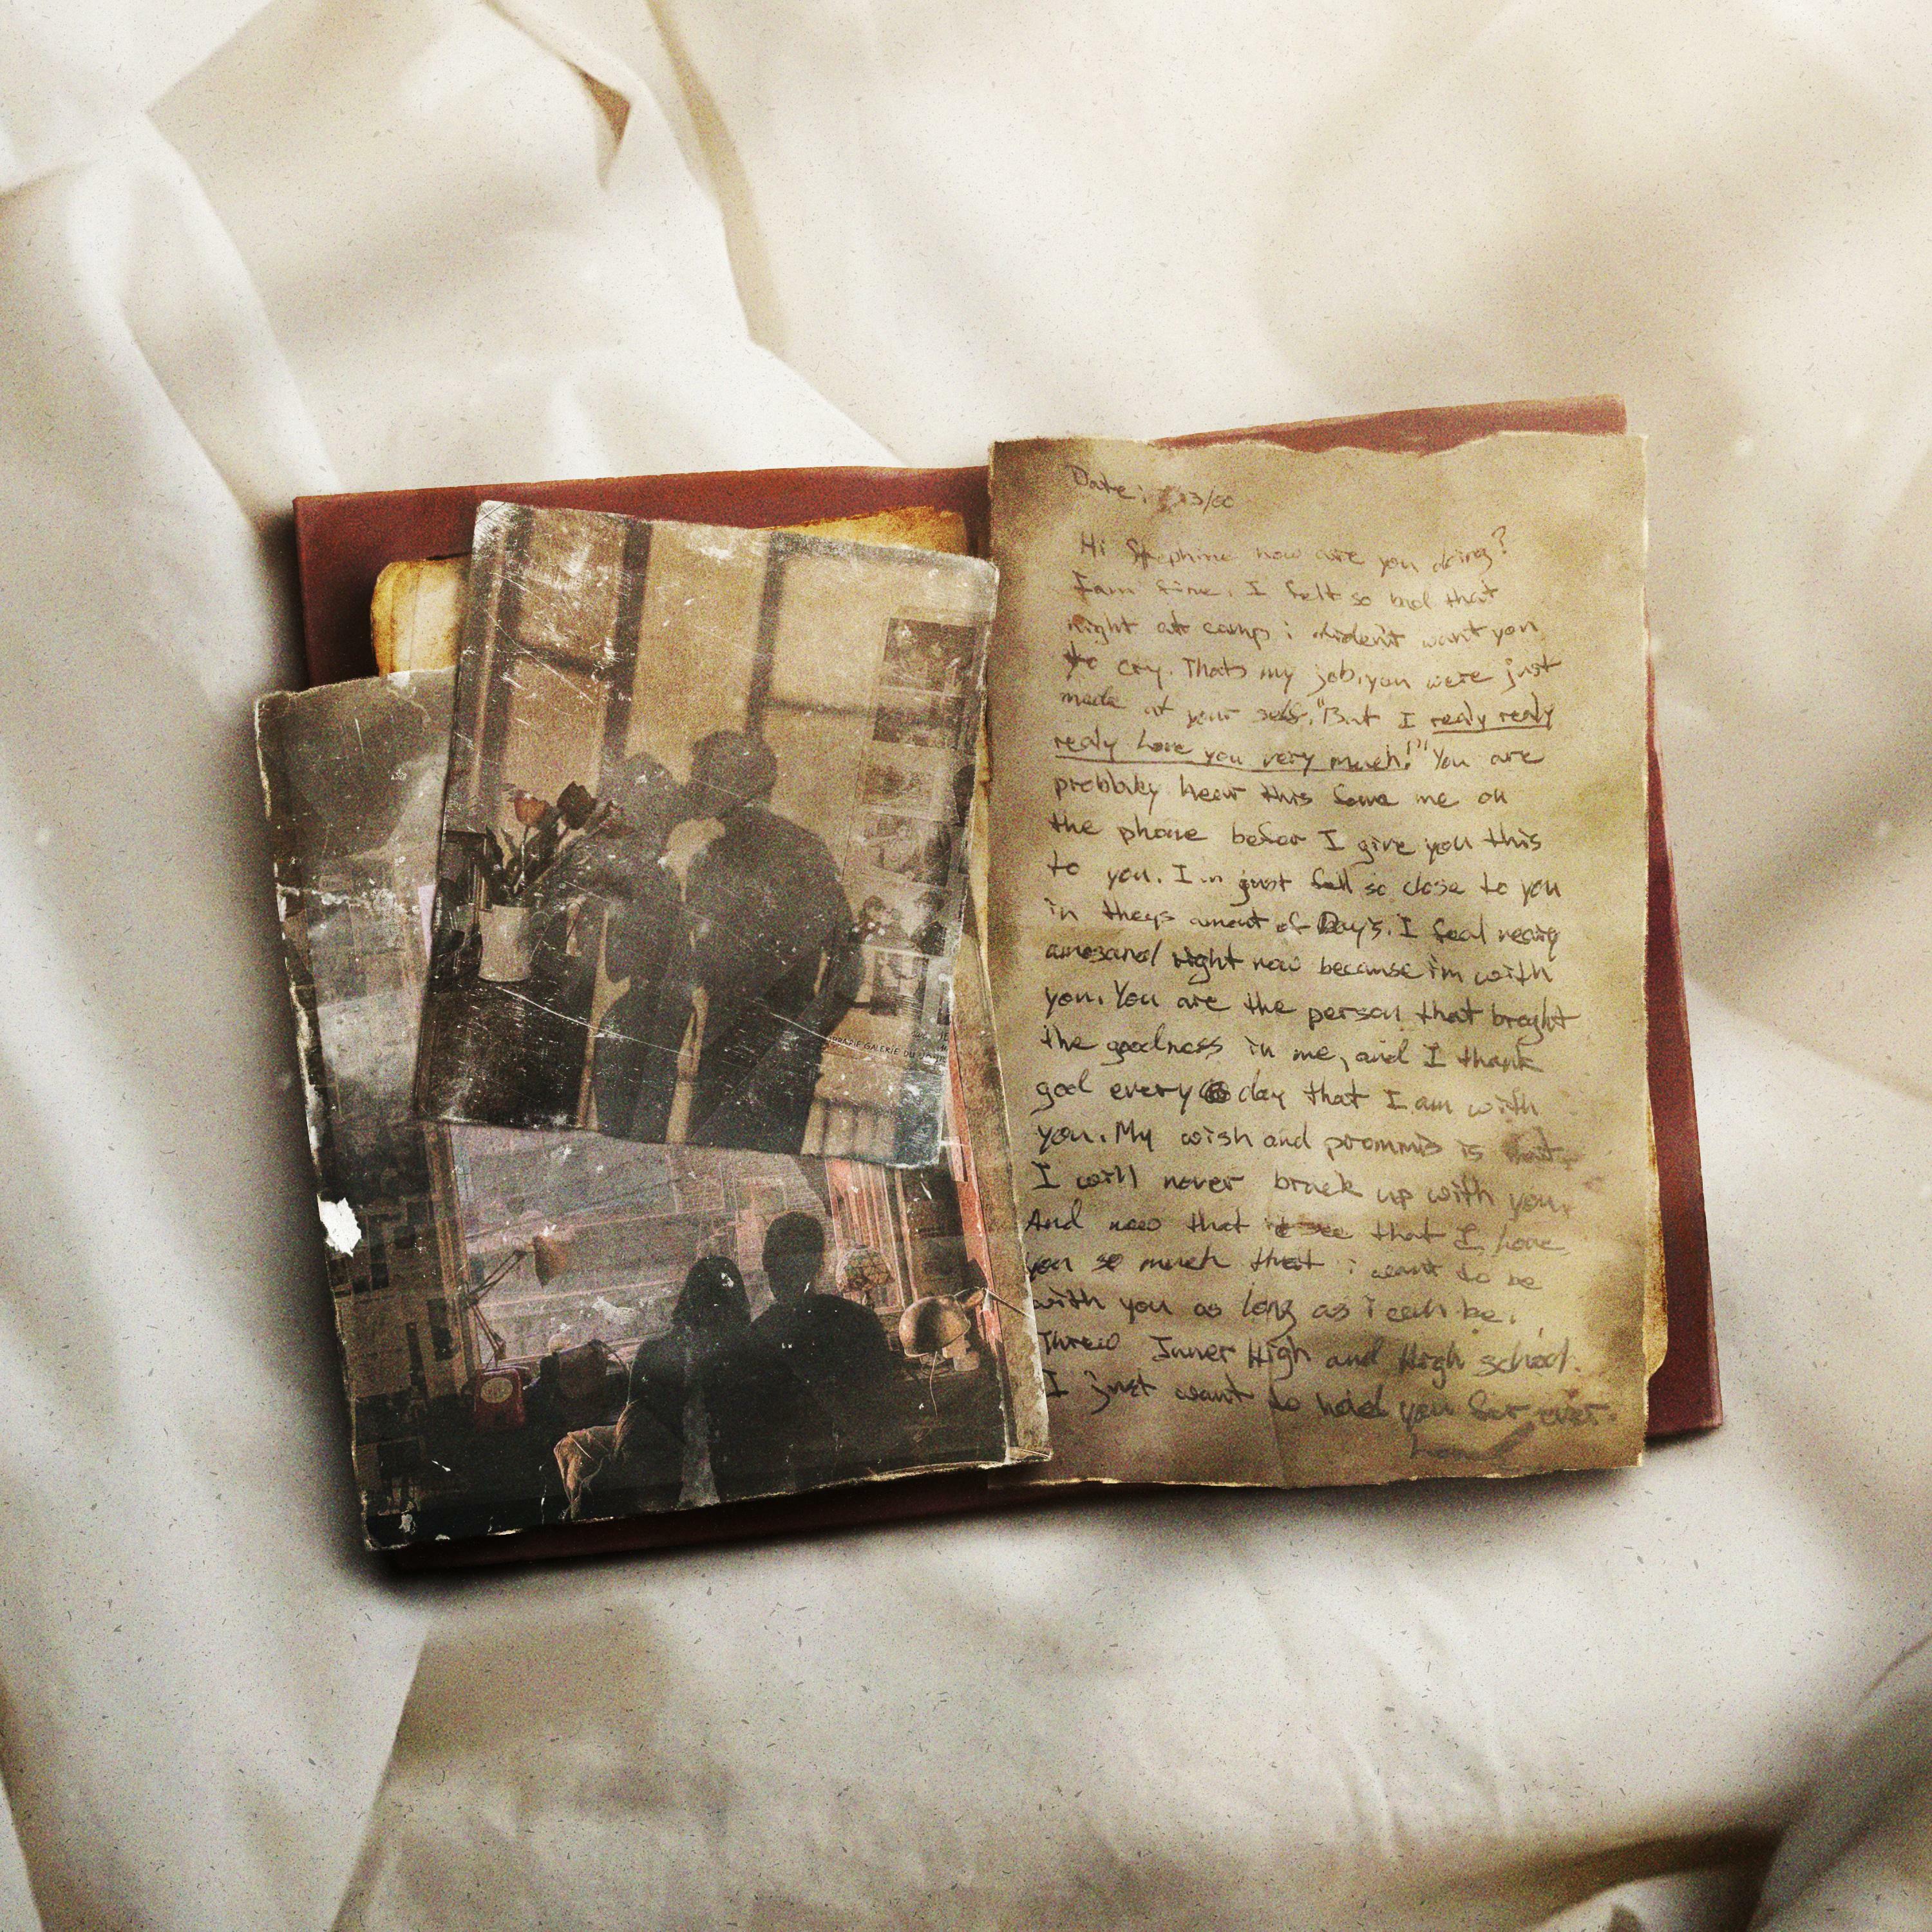 GALERIE DU
Date: 13/00
Hi Stephine how are you doing?
I am fine. I felt so bad that
night at camp i dident want you
to cry. Thats my job, you were just
made at your self. "But I realy realy
realy Love you very much!" You are
probbaly hear this fome me on
the phone befor I give you this
to you. I'm just fell so close to you
in theys amont of Days. I feal realy
amazand right now because i'm with
you. You are the person that broght
the goodness in me, and I thank
god every day that I am with
you. My wish and prommis is that
I will never brack up with you.
And now that see that I love
you so much that i want to be
with you as long as i can be.
Threw Junner High and High school.
I just want to hold you for ever.